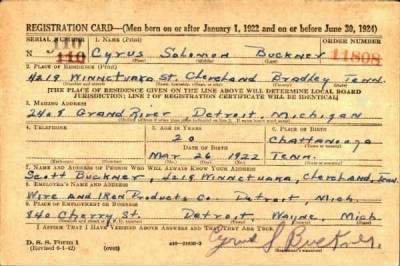 REGISTRATION CARD—(Men born on or after January 1, 1922 and on or before June 30, 1924)
SERIAL NUMBER 1. NAME (Print) ORDER NUMBER
110
N 110 Cyrus Solomon Buckner 11808
2. PLACE OF RESIDENCE (Print)
4219 Winnetuaka St. Cleveland Bradley Tenn.
[THE PLACE OF RESIDENCE GIVEN ON THE LINE ABOVE WILL DETERMINE LOCAL BOARD
JURISDICTION; LINE 2 OF REGISTRATION CERTIFICATE WILL BE IDENTICAL]
3. MAILING ADDRESS
2409 Grand River Detroit, Michigan
4. TELEPHONE 5. AGE IN YEARS 6. PLACE OF BIRTH
20 Chattanooga
DATE OF BIRTH
Mar 26 1922 Tenn.
7. NAME AND ADDRESS OF PERSON WHO WILL ALWAYS KNOW YOUR ADDRESS
Scott Buckner, 4219 Winnetuaka, Cleveland, Tenn.
8. EMPLOYER'S NAME AND ADDRESS
Wire and Iron Products Co. Detroit, Mich.
9. PLACE OF EMPLOYMENT OR BUSINESS
840 Cherry St. Detroit, Wayne, Mich.
I AFFIRM THAT I HAVE VERIFIED ABOVE ANSWERS AND THAT THEY ARE TRUE.
D. S. S. Form 1
(Revised 6-1-42) (over) Cyrus S Buckner